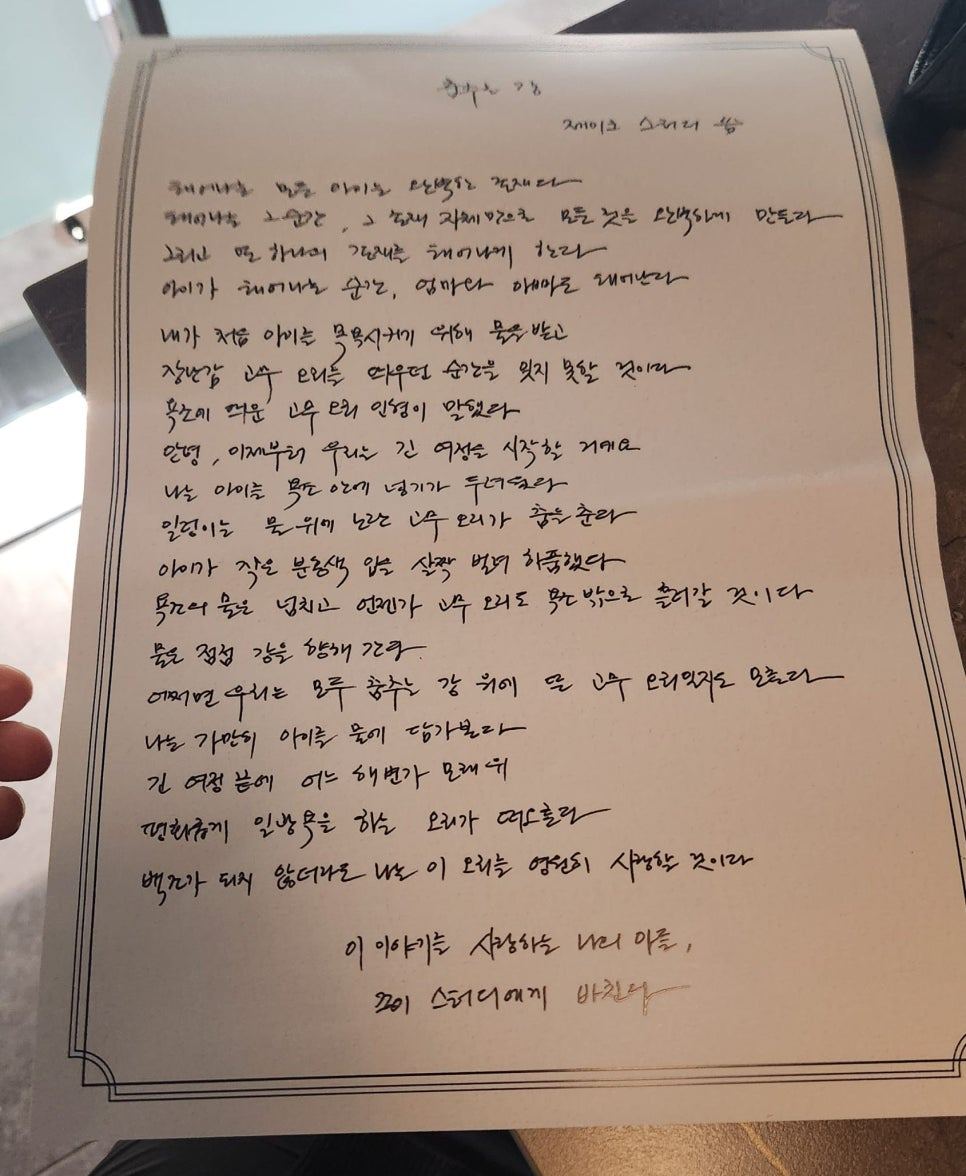 춤추는 강
제이크 스터디 씀
태어나는 모든 아이는 완벽한 존재다
태어나는 그 순간, 그 존재 자체만으로 모든 것을 완벽하게 만든다
그리고 또 하나의 존재를 태어나게 한다
아이가 태어나는 순간, 엄마와 아빠도 태어난다
내가 처음 아이를 목욕시키기 위해 물을 받고
장난감 고무 오리를 띄우던 순간을 잊지 못할 것이다
욕조에 띄운 고무 오리 인형이 말했다
안녕, 이제부터 우리는 긴 여정을 시작할 거예요
나는 아이를 욕조 안에 넣기가 두려웠다
일렁이는 물 위에 노란 고무 오리가 춤을 춘다
아이가 작은 분홍색 입을 살짝 벌려 하품했다
욕조의 물은 넘치고 언젠가 고무 오리도 욕조 밖으로 흘러갈 것이다
물은 점점 강을 향해 간다
어쩌면 우리는 모두 춤추는 강 위에 뜬 고무 오리일지도 모른다
나는 가만히 아이를 물에 담가본다
긴 여정 끝에 어느 해변가 모래 위
평화롭게 일광욕을 하는 오리가 떠오른다
백조가 되지 않더라도 나는 이 오리를 영원히 사랑할 것이다
이 이야기를 사랑하는 나의 아들,
스터디에게 바친다